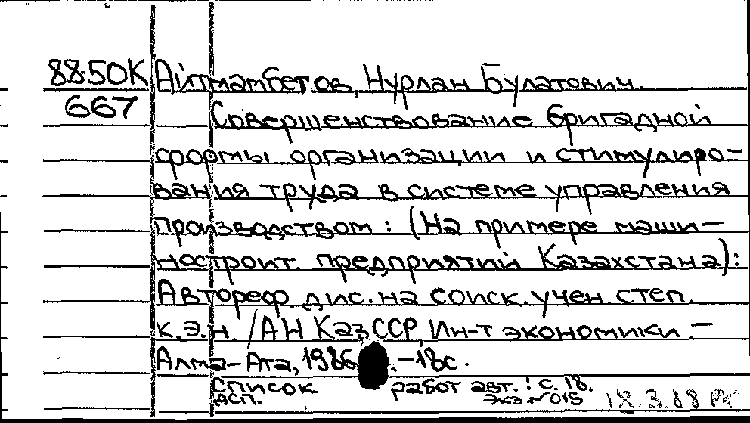 8850К Айтмамбетов, Нурлан Булатович.
667 Совершенствование бригадной
формы организации и стимулиро-
вания труда в системе управления
производством: (На примере маши-
ностроит. предприятий Казахстана):
Автореф. дис. на соиск. учен. степ.
к.э.н. / АН КазССР. Ин-т экономики. —
Алма-Ата, 1986. — 18с.
Список работ авт.: с. 18.
ДСП. Экз №015 18.3.88